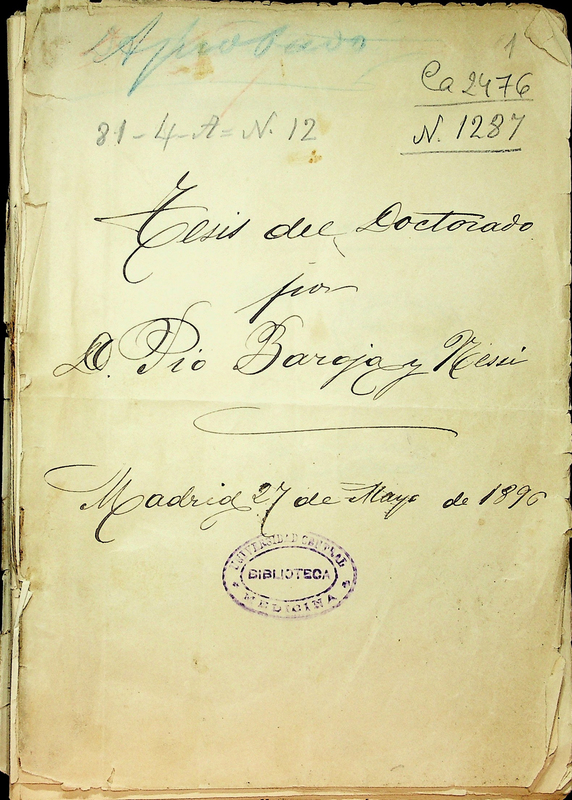 Aprobado
1
Ca 2476
N. 1287
81-4-A=N. 12
Tesis del Doctorado
por
D. Pío Baroja y Nessi
Madrid 27 de Mayo de 1896
UNIVERSIDAD CENTRAL
BIBLIOTECA
MEDICINA